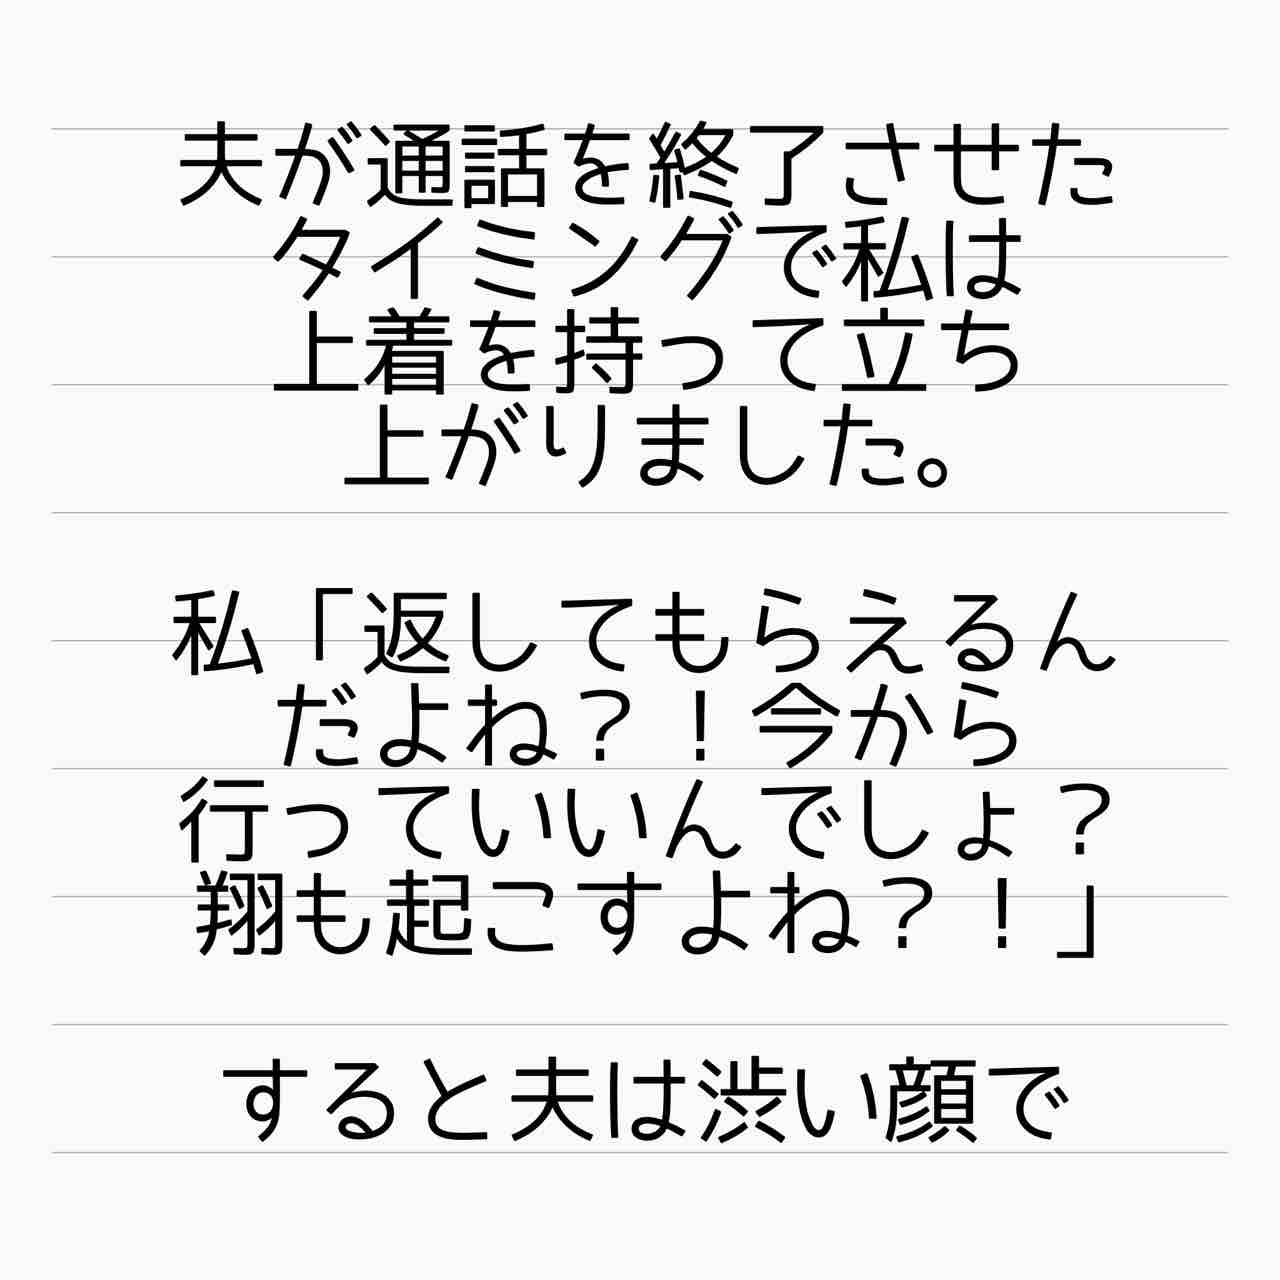 夫が通話を終了させた
タイミングで私は
上着を持って立ち
上がりました。
私「返してもらえるん
だよね？！今から
行っていいんでしょ？
翔も起こすよね？！」
すると夫は渋い顔で